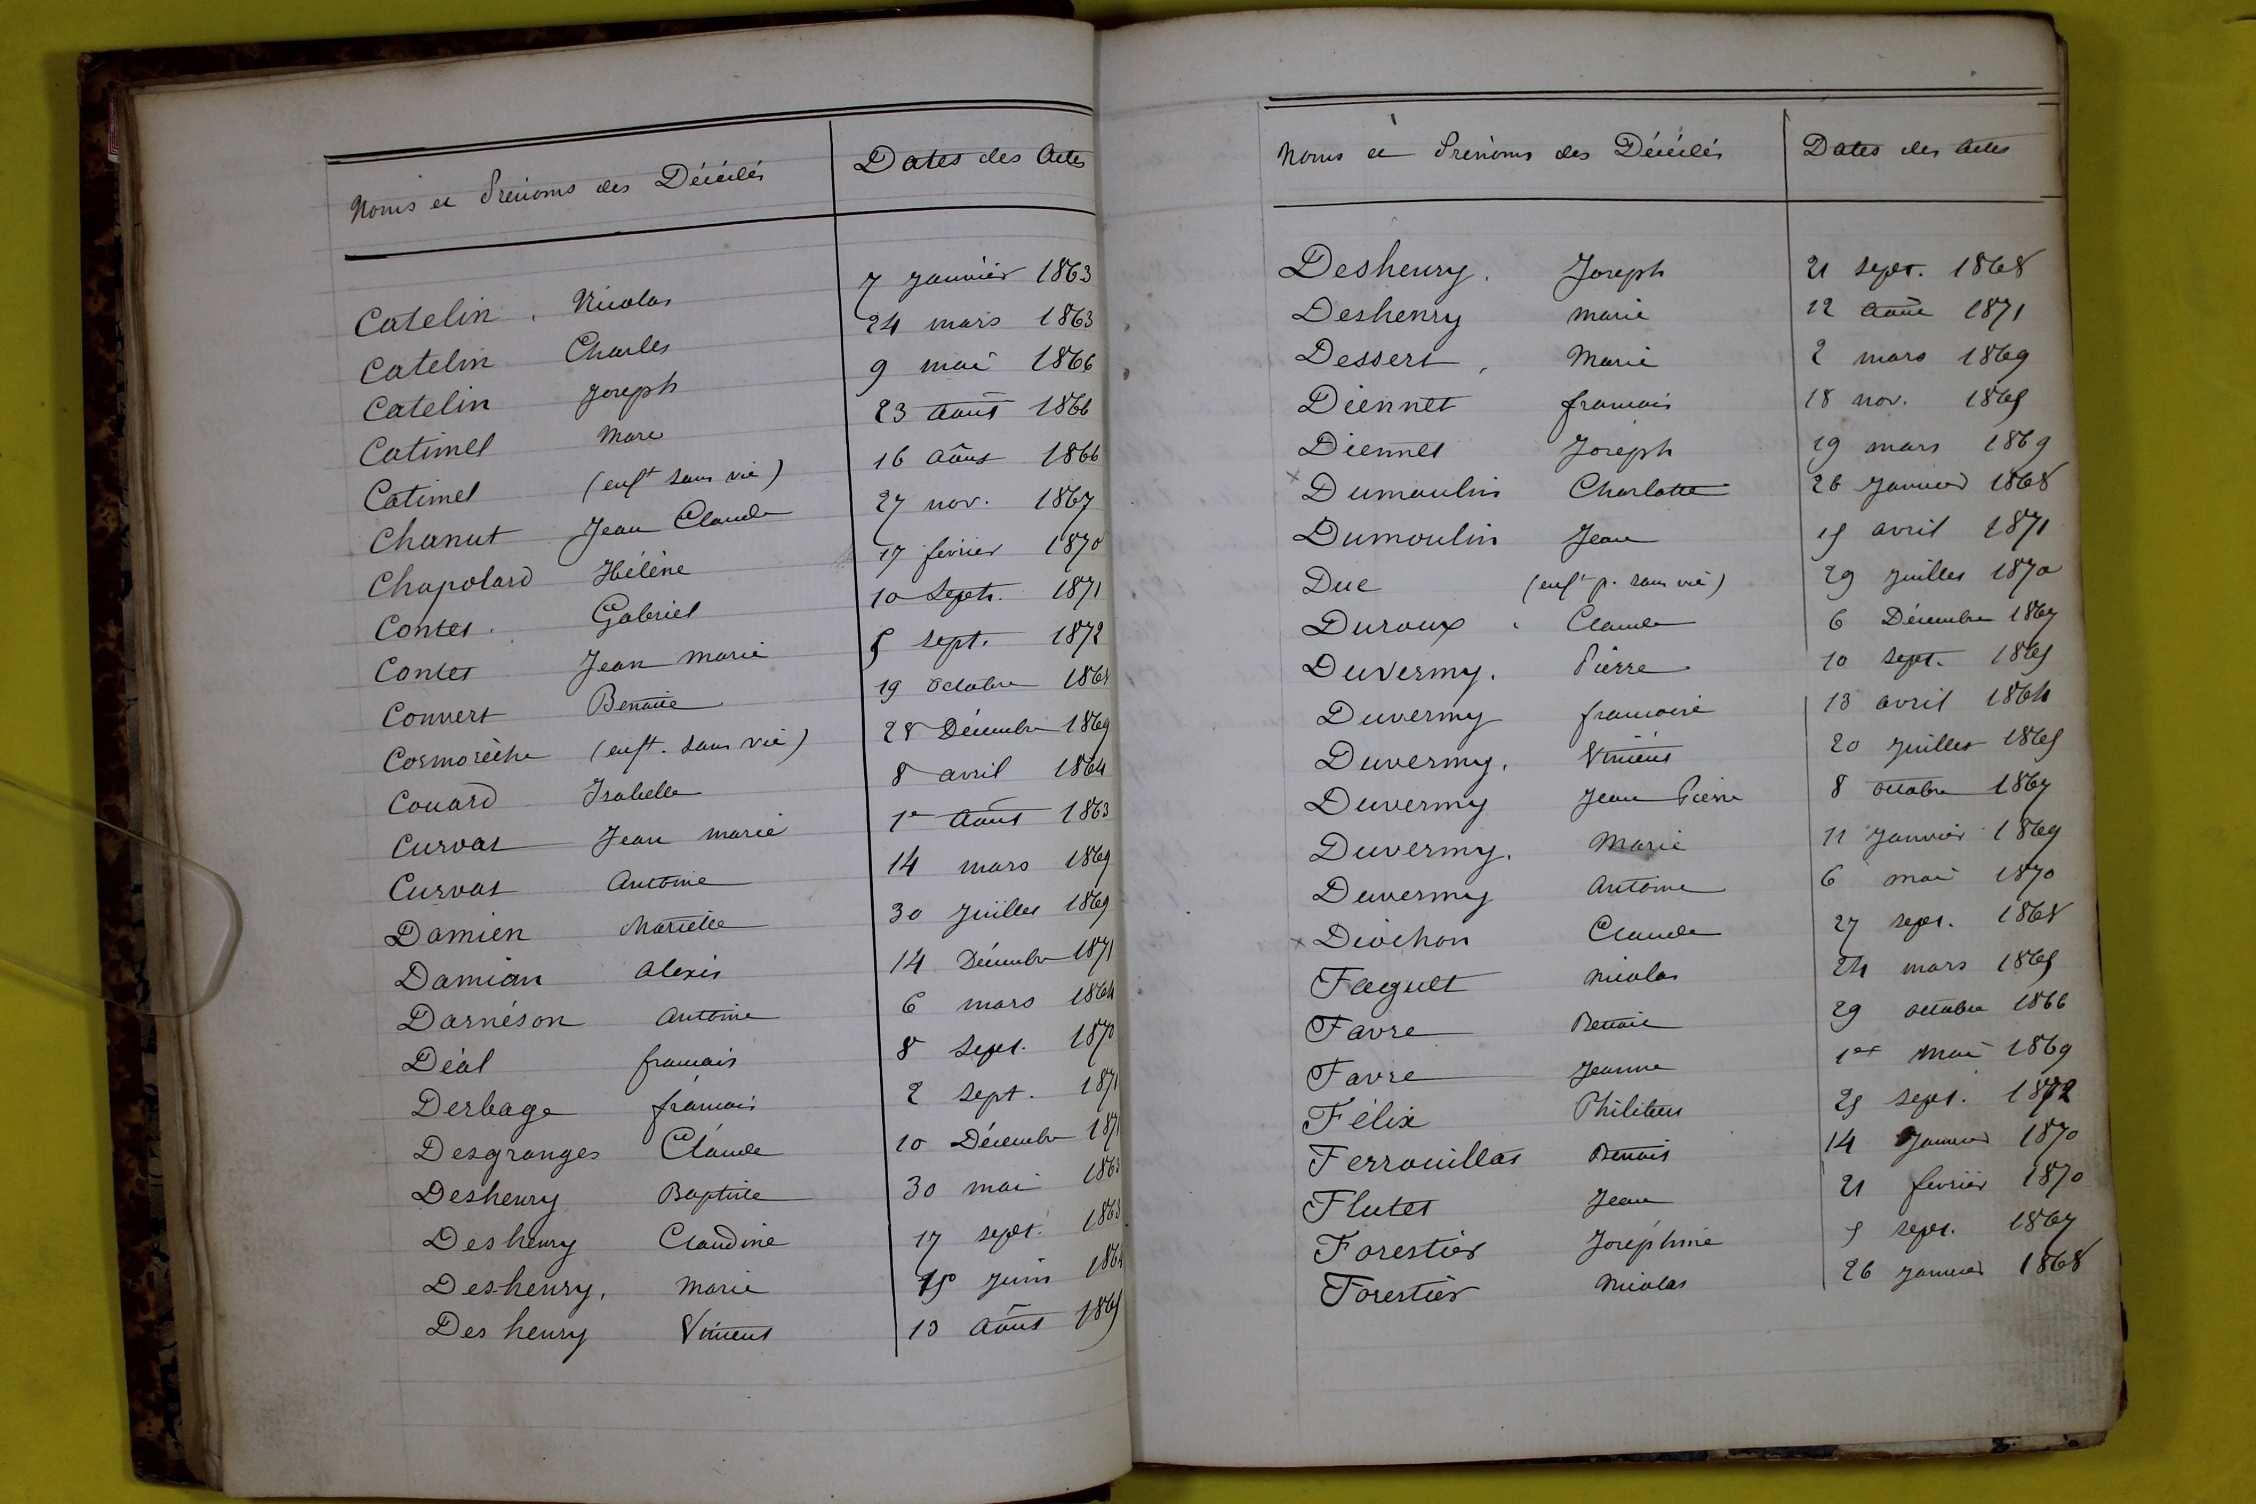 Noms et Prénoms des Décédés Dates des Actes
Catelin, Nicolas 7 Janvier 1863
Catelin Charles 24 mars 1863
Catelin Joseph 9 mai 1866
Catimel Marc 23 Août 1866
Catimel (enft sans vie) 16 Août 1866
Chanut Jean Claude 27 nov. 1867
Chapolard Hélène 17 février 1870
Contet. Gabriel 10 Sept. 1871
Contet Jean Marie 5 sept. 1872
Convert Benoite 19 Octobre
Cormorèche (enft. sans vie) 28 Décembre 1869
Couard Isabelle 8 avril 1864
Curvat Jean Marie 1er Août 1863
Curvat Antoine 14 mars 1869
Damien Mariette 30 Juillet 1869
Damian Alexis 14 Décembre 1871
Darnéson Antoine 6 mars 1864
Déal François 8 Sept. 1870
Derbage François 2 Sept. 1871
Desgranges Claude 10 Décembre 1871
Deshenry Baptiste 30 mai 1863
Deshenry Claudine 17 sept. 1863
Deshenry, Marie 15 Juin 1864
Deshenry Vincent 13 Août 1865
Noms et Prénoms des Décédés Dates des Actes
Deshenry. Joseph 21 sept. 1868
Deshenry Marie 12 Août 1871
Dessert, Marie 2 mars 1869
Diennet François 18 nov. 1865
Diennet Joseph 19 mars 1869
x Dumoulin Charlotte 26 Janvier 1868
Dumoulin Jean 15 avril 1871
Duc (enft p. sans vie) 29 Juillet 1870
Duroux. Claude 6 Décembre 1867
Duvermy. Pierre 10 sept. 1865
Duvermy Françoise 13 avril 1864
Duvermy. Vincent 20 Juillet 1865
Duvermy Jean Pierre 8 Octobre 1867
Duvermy. Marie 11 Janvier 1869
Duvermy Antoine 6 mai 1870
x Diochon Claude 27 sept. 1868
Faguet Nicolas 24 mars 1865
Favre Benoit 29 octobre 1866
Favre Jeanne 1er Mai 1869
Félix 25 sept. 1872
Ferrouillat Benoit 14 Janvier 1870
Flutet Jean 21 février 1870
Forestier Joséphine 5 sept. 1867
Forestier Nicolas 26 Janvier 1868